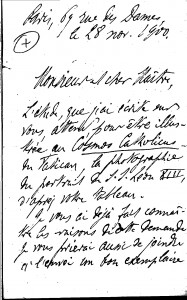 Paris, 69 rue des Dames,
le 28 nov. 1900.
Monsieur et cher Maître,
L'étude que j'ai écrite sur
vous attend pour être illus-
trée au Cosmos Catholicus
du Vatican, la photographie
du portrait de S. S. Léon XIII,
d'après votre tableau.
Je vous ai déjà fait connaî-
tre les raisons de cette demande
Je vous prierai aussi de joindre
à l'envoi un bon exemplaire